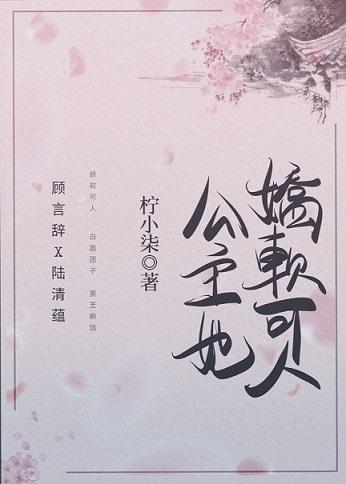 嬌軟可人
公主她
柠小柒◎著
娇软可人 白面团子 黑芝麻馅
顾言辞X陆清蕴